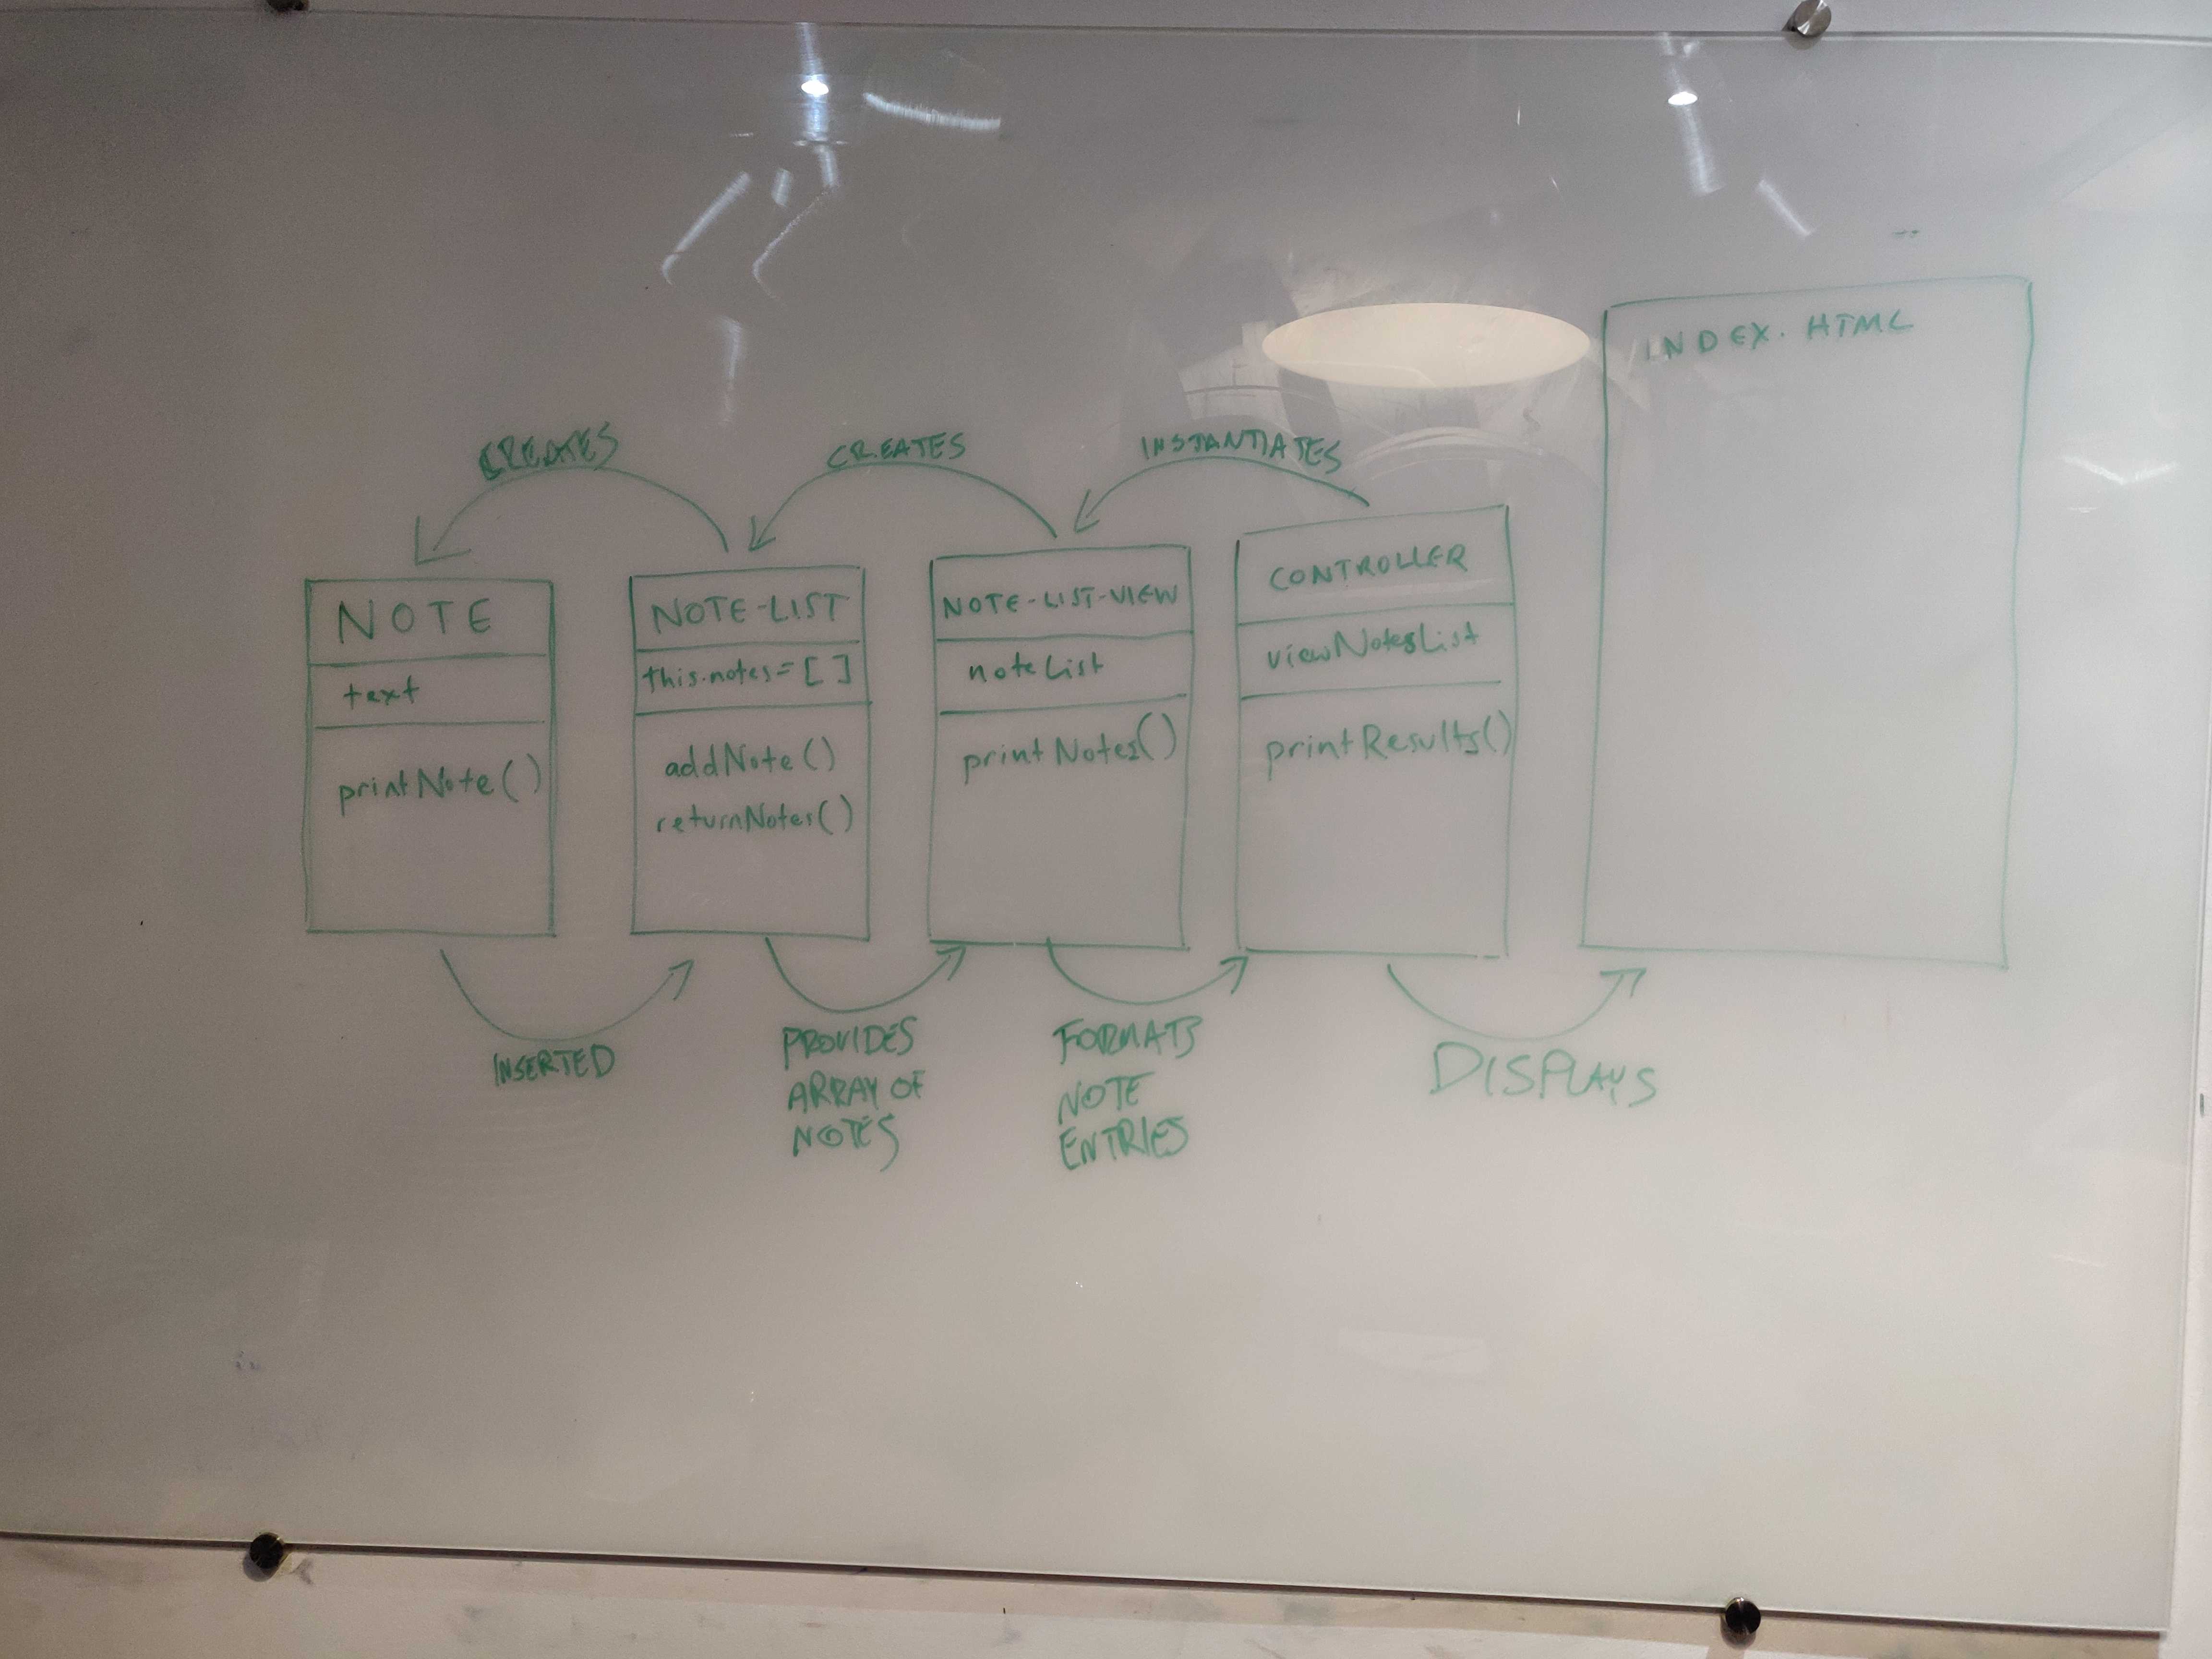 INDEX. HTML
CREATES
CREATES
INSTANTIATES
NOTE
text
printNote()
NOTE-LIST
this.notes=[]
addNote()
returnNotes()
NOTE-LIST-VIEW
noteList
printNotes()
CONTROLLER
viewNotesList
printResults()
INSERTED
PROVIDES
ARRAY OF
NOTES
FORMATS
NOTE
ENTRIES
DISPLAYS